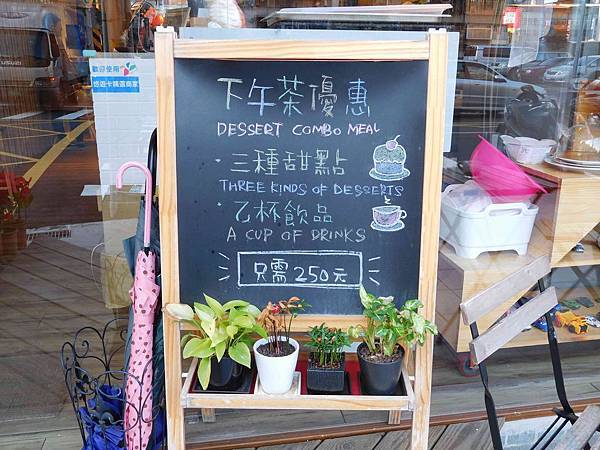 歡迎使用
悠遊卡精選商家
下午茶優惠
DESSERT COMBO MEAL
·三種甜點
THREE KINDS OF DESSERTS
·乙杯飲品
A CUP OF DRINKS
只需250元